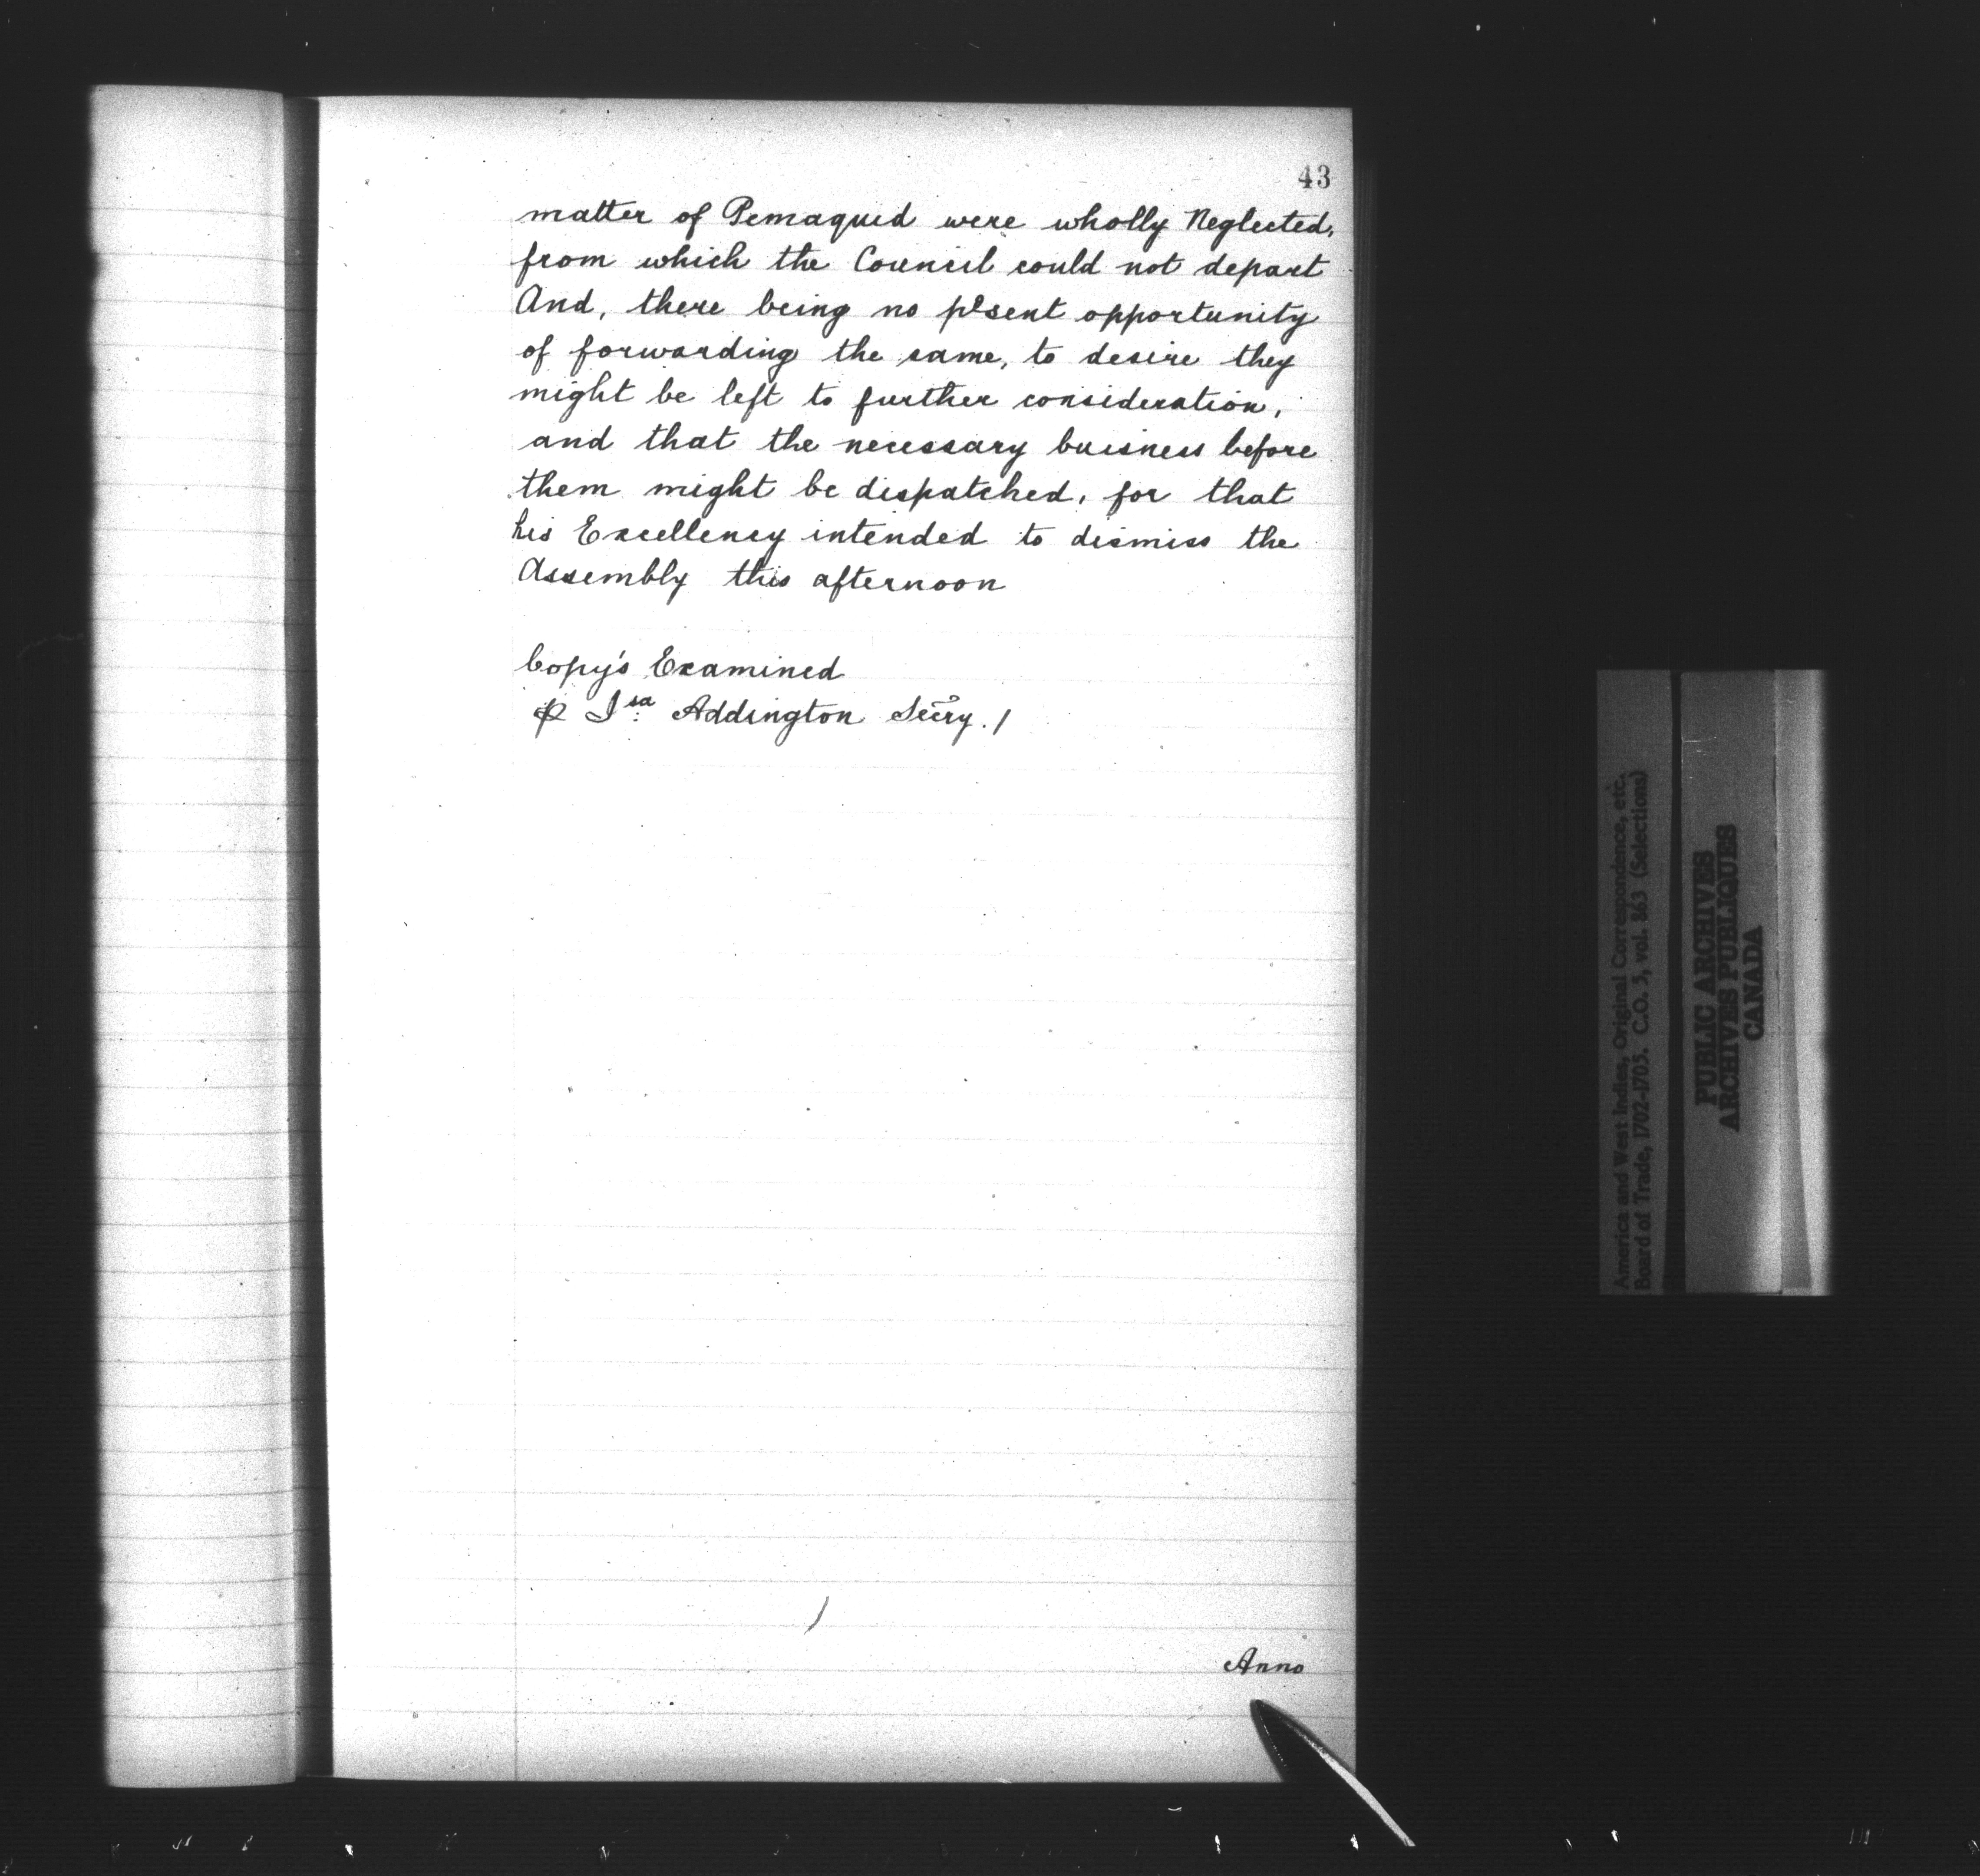 43
matter of Pemaquid were wholly Neglected,
from which the Council could not depart
And, there being no p̱sent opportunity
of forwarding the same, to desire they
might be left to further consideration,
and that the necessary buisness before
them might be dispatched, for that
his Excellency intended to dismiss the
Assembly this afternoon
Copy's Examined
⅌ Isa Addington Secry. /
Anno
America and West Indies, Original Correspondence, etc.
Board of Trade, 1702-1703. C.O. 5, vol. 863 (Selections)
PUBLIC ARCHIVES
ARCHIVES PUBLIQUES
CANADA